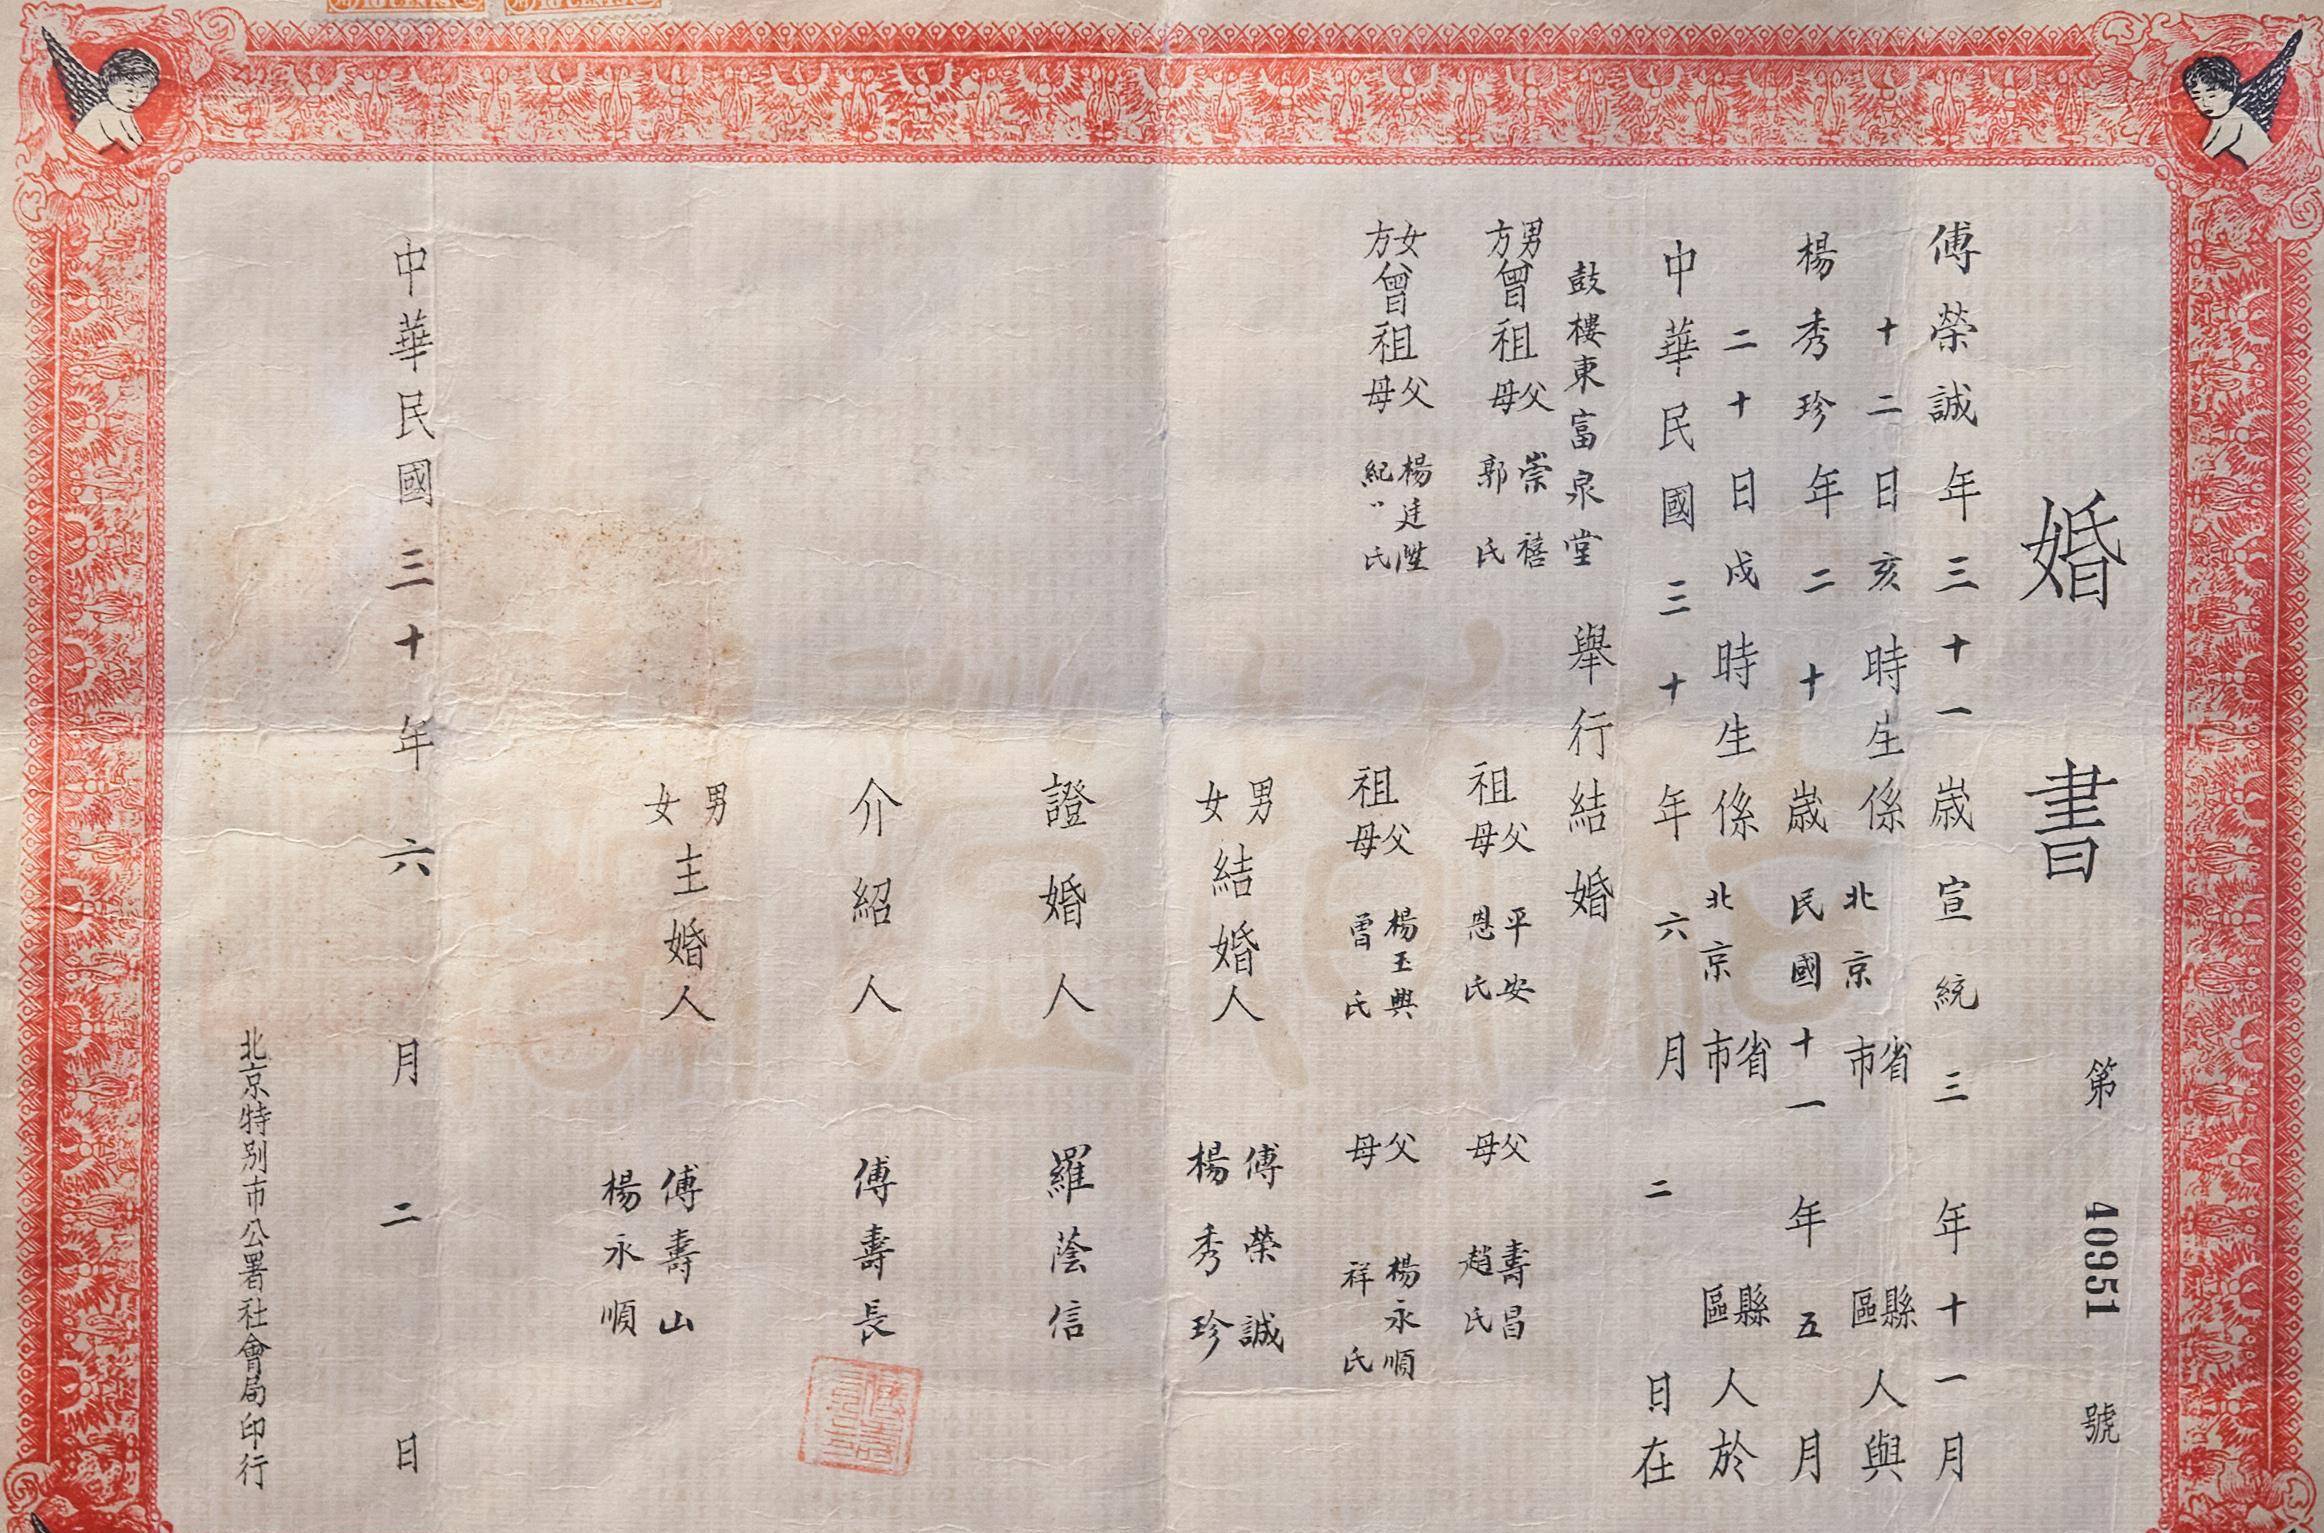 婚書
第 40951 號
傅榮誠年三十一歲宣統三年十一月
十二日亥時生係北京省市縣區人與
楊秀珍年二十歲民國十一年五月
二十日戌時生係北京省市縣區人於
中華民國三十年六月二日在
鼓樓東富泉堂舉行結婚
男方曾祖父母崇禧郭氏祖父母平安恩氏父母壽昌趙氏
女方曾祖父母楊廷陞紀〃氏祖父母楊玉興曾氏父母楊永順祥氏
男女結婚人傅榮誠楊秀珍
證婚人羅蔭信
介紹人傅壽長
男女主婚人傅壽山楊永順
中華民國三十年六月二日
北京特別市公署社會局印行